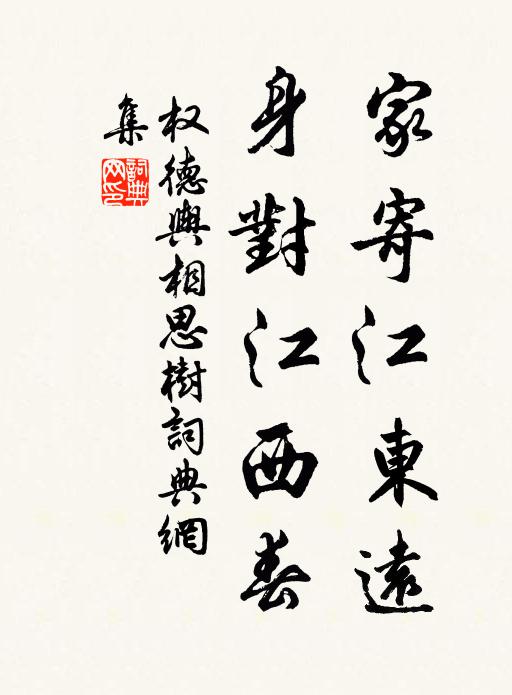 家寄江東遠
身對江西春
权德輿相思樹詞典網
集
詞典網印